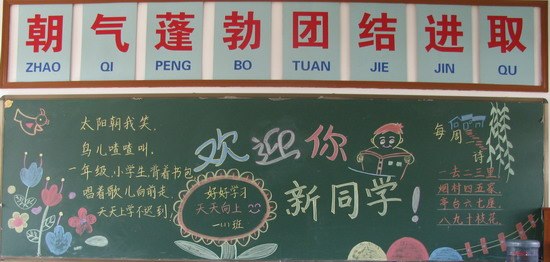 朝气蓬勃团结进取
ZHAO QI PENG BO TUAN JIE JIN QU
太阳朝我笑,
鸟儿喳喳叫,
一年级小学生背着书包
唱着歌儿向前走,
天天上学不迟到!
欢迎你
新同学!
好好学习
天天向上
一(1)班
每周一诗
一去二三里
烟村四五家
亭台六七座
八九十枝花